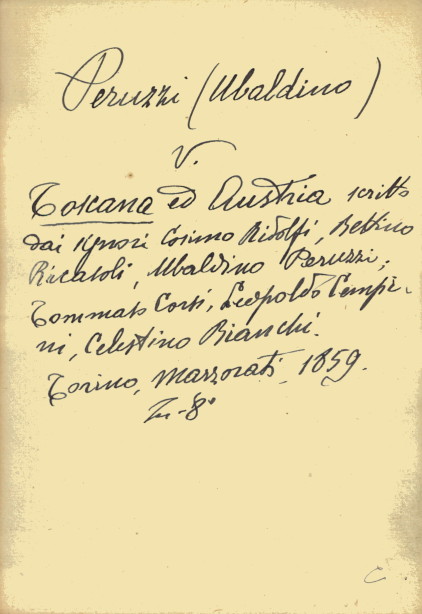 Peruzzi (Ubaldino)
V.
Toscana ed Austria scritto
dai signori Cosimo Ridolfi, Bettino
Ricasoli, Ubaldino Peruzzi,
Tommaso Corsi, Leopoldo Cempi-
ni, Celestino Bianchi.
Torino, Marzorati, 1859.
In-8°
C